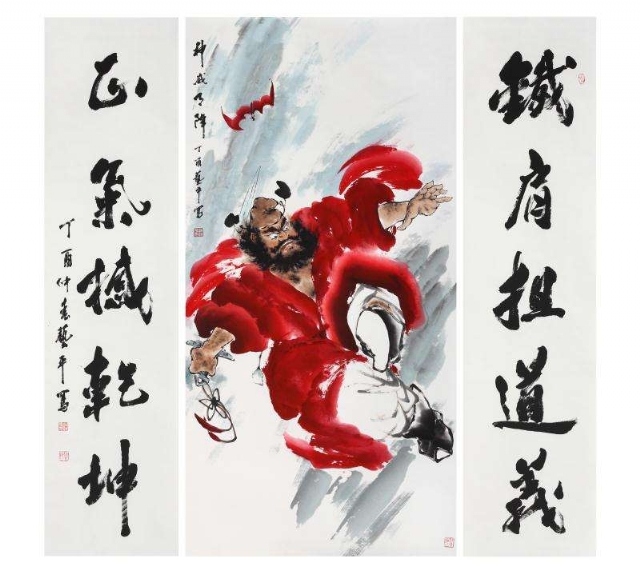 鐵肩担道義
神威降 丁酉藝平写
正氣撼乾坤
丁酉仲春藝平写